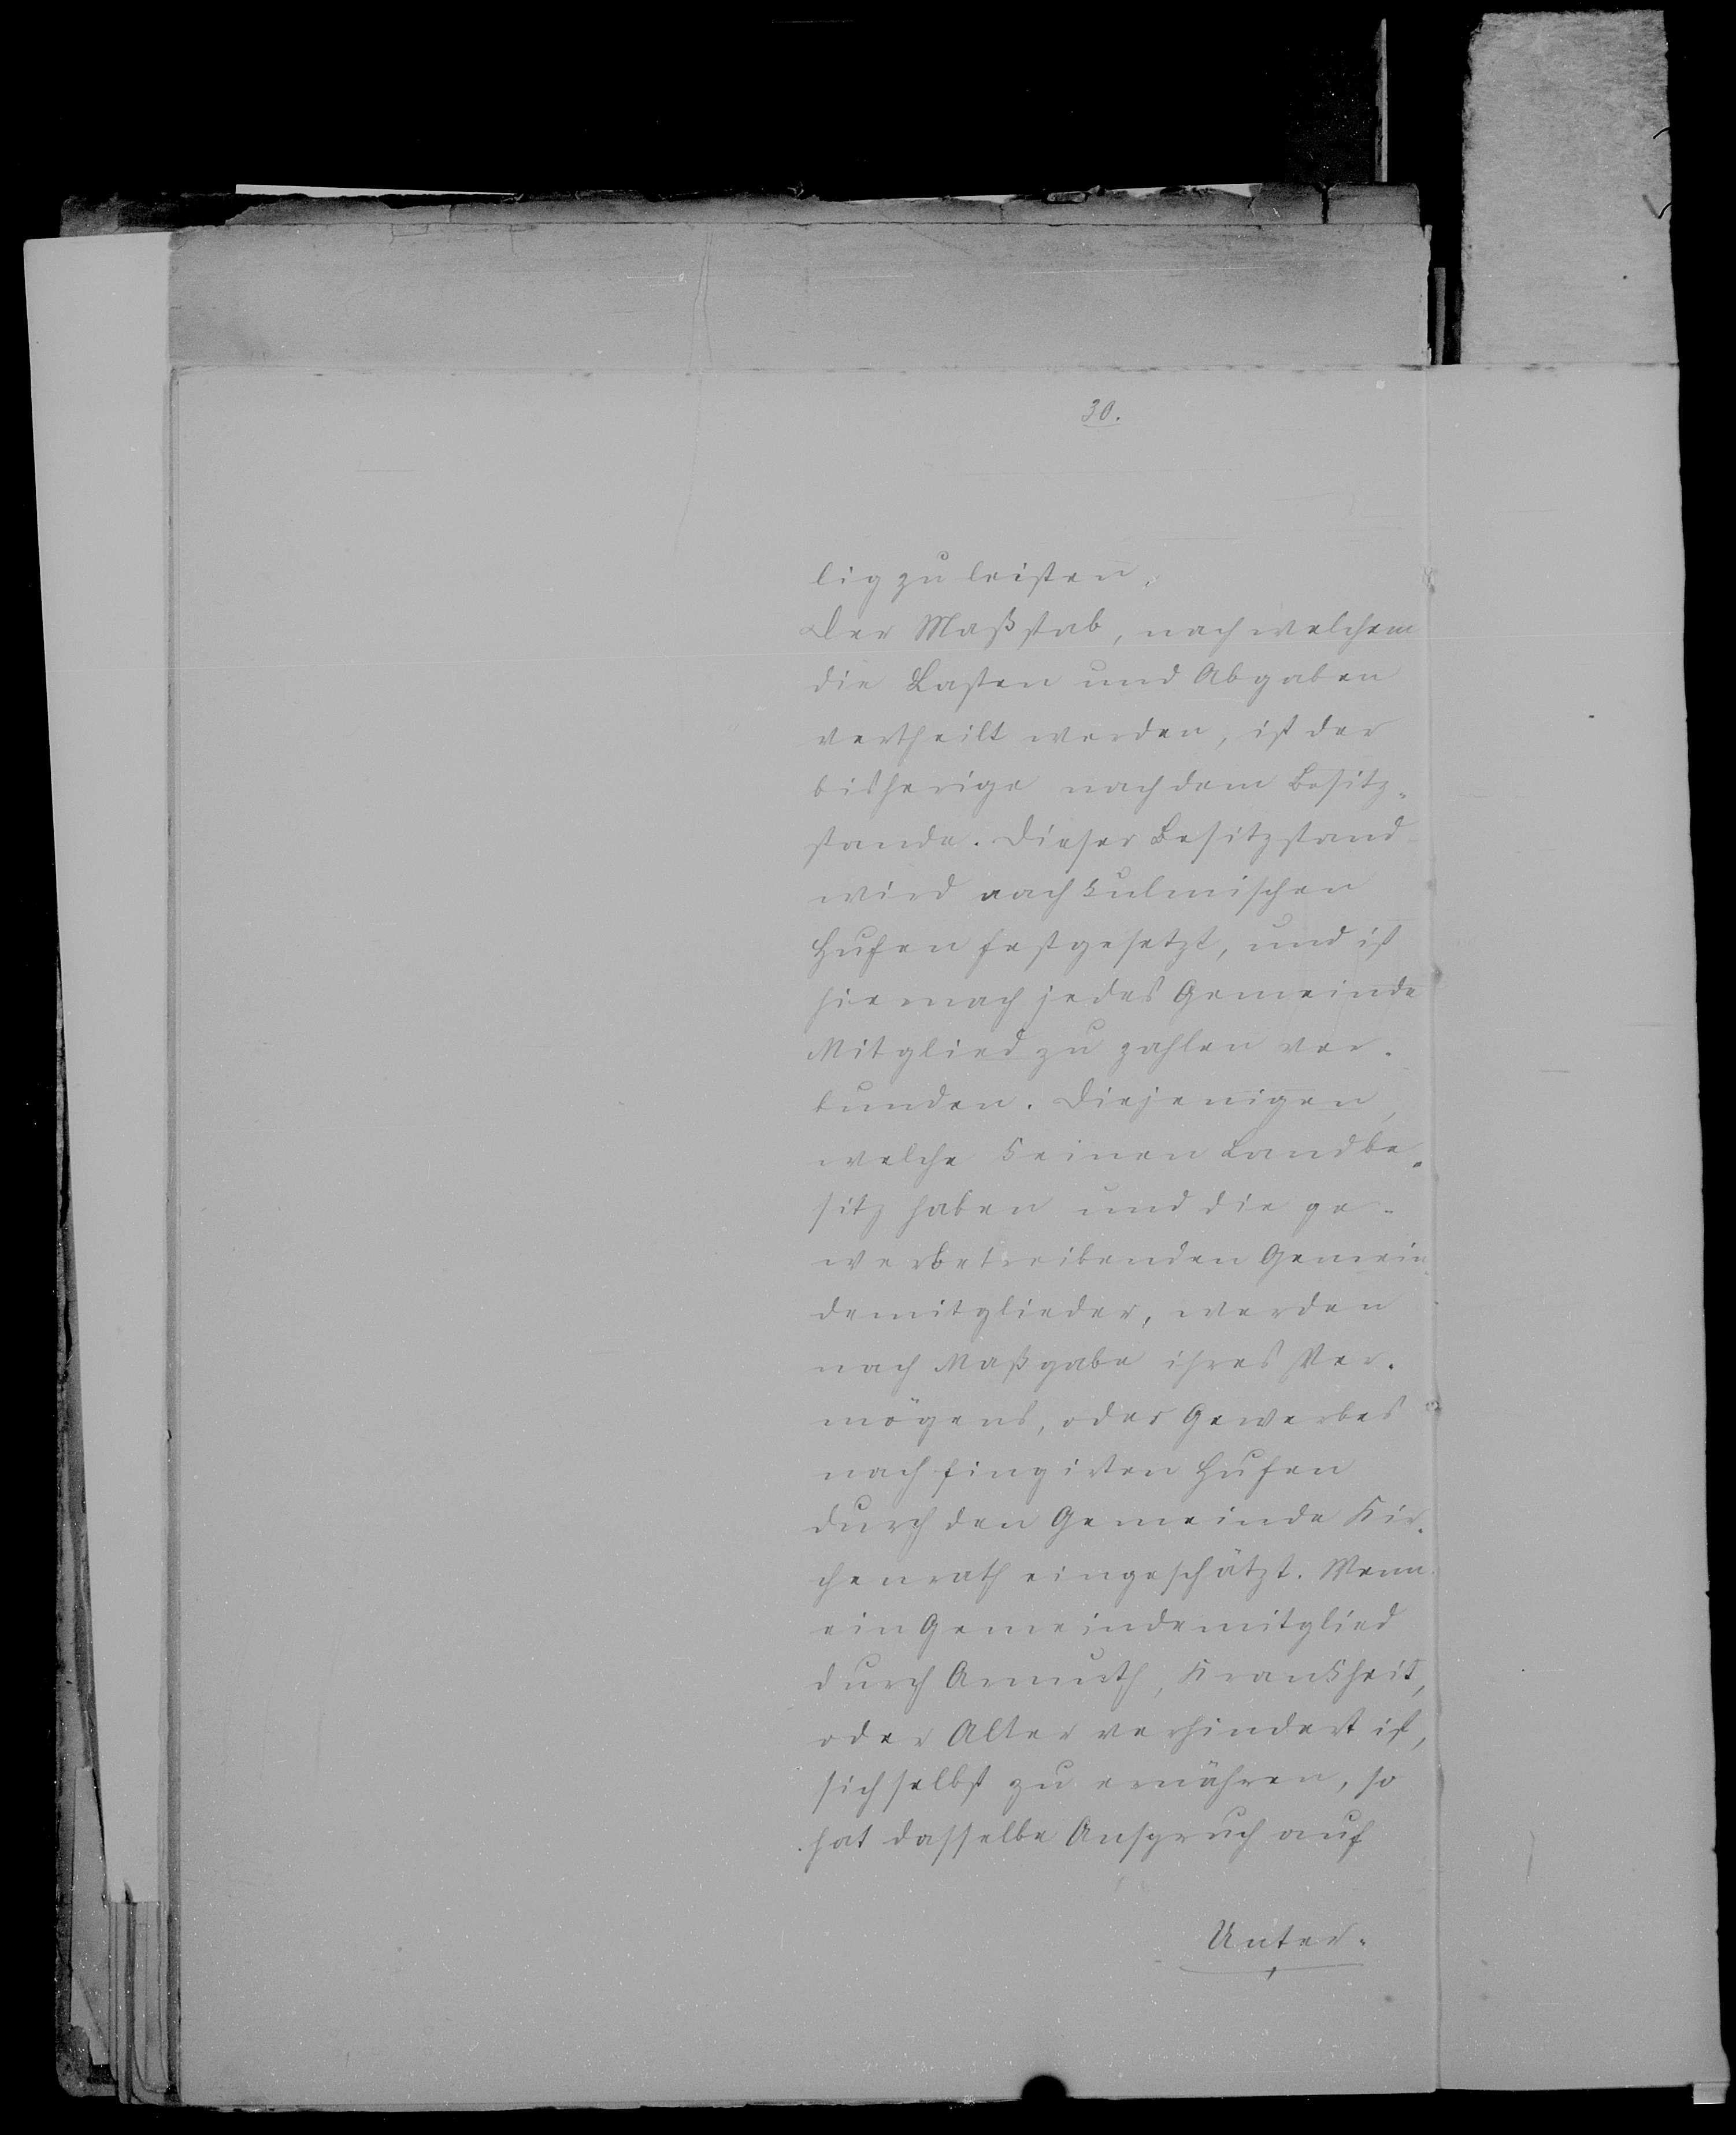 30.
lig zu leisten.
Der Maßstab, nach welchem
die Lasten und Abgaben
vertheilt werden, ist der
bisherige nach dem Besitz-
stande. Dieser Besitzstand
wird nach kulmischen
Hufen festgesetzt, und ist
hiernach jedes Gemeinde
Mitglied zu zahlen ver-
bunden. Diejenigen,
welche keinen Landbe-
sitz haben und die ge-
werbetreibenden Gemein-
demitglieder, werden
nach Maßgabe ihres Ver-
mögens, oder Gewerbes
nach fingirten Hufen
durch den Gemeinde Kir-
chenrath eingeschätzt. Wenn
ein Gemeindemitglied
durch Armuth, Krankheit,
oder Alter verhindert ist,
sich selbst zu ernähren, so
hat dasselbe Anspruch auf
Unter-